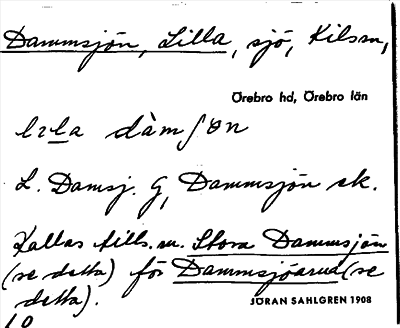 Dammsjön, Lilla, sjö, Kilsm,
Örebro hd, Örebro län
lɩla dàmʃön
L. Damsj. G, Dammsjön sk.
Kallas tills. m. Stora Dammsjön
(se detta) för Dammsjöarna (se
detta).
JÖRAN SAHLGREN 1908